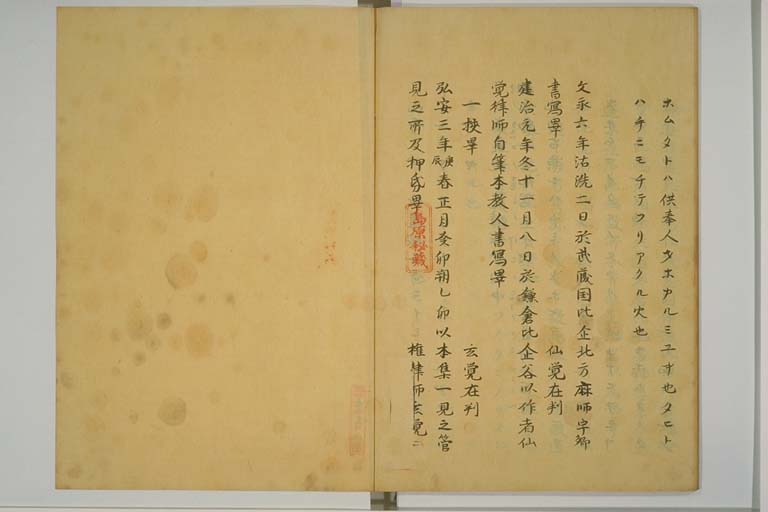 ホムタトハ供奉人ナホカルミユナ也タヒト
ハチニモチテフリアクル火也
文永六年沽洗二日於武蔵国比企北方麻師宇郷
書寫畢　仙覚在判
建治元年冬十一月八日於鎌倉比企谷以作者仙
覚律師自筆本教人書寫畢
一挍畢　玄覚在判
弘安三年庚辰春正月癸卯朔乙卯以本集一見之管
見之所及押紙畢　権律師玄覚
島原秘蔵